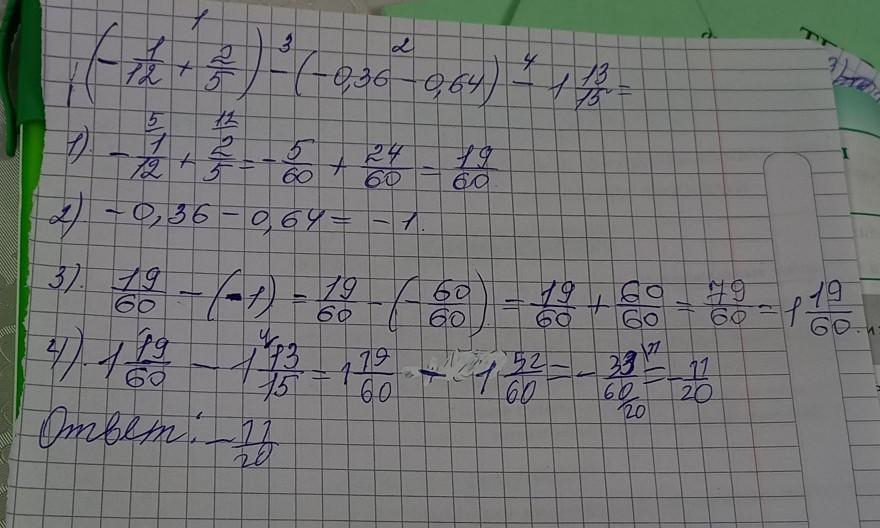 1 3 2 4
(-1/12 + 2/5) - (-0,36 - 0,64) - 1 13/15 =
5 12
1). -1/12 + 2/5 = -5/60 + 24/60 = 19/60.
2). -0,36 - 0,64 = -1.
3). 19/60 - (-1) = 19/60 - (-60/60) = 19/60 + 60/60 = 79/60 = 1 19/60.
4). 1 19/60 - 1 13/15 = 1 19/60 - 1 52/60 = -33/60 = -11/20
Ответ: -11/20